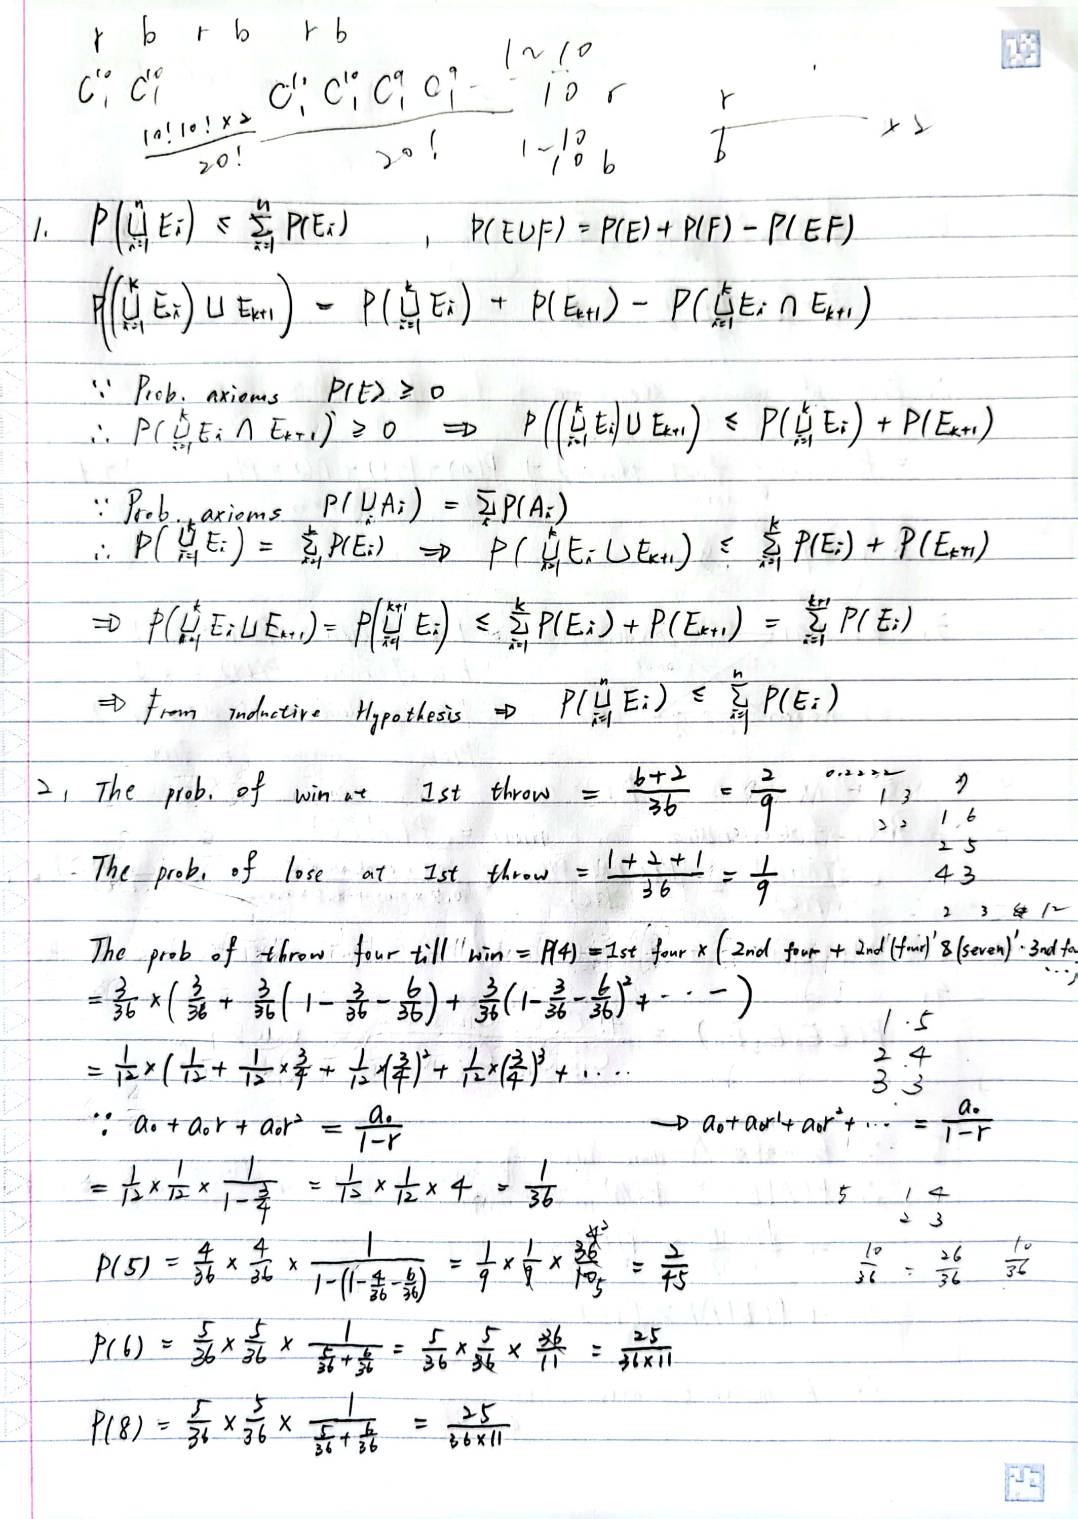 r b r b r b
C₁¹⁰ C₁¹⁰ C₁¹⁰ C₁¹⁰ C₁⁹ C₁⁹ 1~10
10 r r
10! 10! ×2 / 20! / 20! 1~10 / b ×2
10 b
1. P(⋃_{i=1}^{n} E_i) ≤ Σ_{i=1}^{n} P(E_i) , P(E∪F) = P(E) + P(F) − P(EF)
P((⋃_{i=1}^{k} E_i) ∪ E_{k+1}) = P(⋃_{i=1}^{k} E_i) + P(E_{k+1}) − P(⋃_{i=1}^{k} E_i ∩ E_{k+1})
∵ Prob. axioms P(E) ≥ 0
∴ P(⋃_{i=1}^{k} E_i ∩ E_{k+1}) ≥ 0 ⇒ P((⋃_{i=1}^{k} E_i) ∪ E_{k+1}) ≤ P(⋃_{i=1}^{k} E_i) + P(E_{k+1})
∵ Prob. axioms P(⋃_i A_i) = Σ_i P(A_i)
∴ P(⋃_{i=1}^{k} E_i) = Σ_{i=1}^{k} P(E_i) ⇒ P(⋃_{i=1}^{k} E_i ∪ E_{k+1}) ≤ Σ_{i=1}^{k} P(E_i) + P(E_{k+1})
⇒ P(⋃_{i=1}^{k} E_i ∪ E_{k+1}) = P(⋃_{i=1}^{k+1} E_i) ≤ Σ_{i=1}^{k} P(E_i) + P(E_{k+1}) = Σ_{i=1}^{k+1} P(E_i)
⇒ From inductive Hypothesis ⇒ P(⋃_{i=1}^{n} E_i) ≤ Σ_{i=1}^{n} P(E_i)
2, The prob. of win at 1st throw = (6+2)/36 = 2/9 0.2222
1 3 7
2 2 1 6
2 5
The prob. of lose at 1st throw = (1+2+1)/36 = 1/9 4 3
2 3 12
The prob of throw four till win = P(4) = 1st four × (2nd four + 2nd (four)' & (seven)' · 3nd fo
...)
= 3/36 × (3/36 + 3/36 (1 − 3/36 − 6/36) + 3/36 (1 − 3/36 − 6/36)² + ····)
1 · 5
2 4
3 3
= 1/12 × (1/12 + 1/12 × 3/4 + 1/12 × (3/4)² + 1/12 × (3/4)³ + ....
∵ a₀ + a₀r + a₀r² = a₀/(1−r) → a₀ + a₀r¹ + a₀r² + ... = a₀/(1−r)
= 1/12 × 1/12 × 1/(1−3/4) = 1/12 × 1/12 × 4 = 1/36 5 1 4
2 3
P(5) = 4/36 × 4/36 × 1/(1−(1−4/36−6/36)) = 1/9 × 1/9 × 36/10 = 2/45 10/36 = 26/36 10/36
P(6) = 5/36 × 5/36 × 1/(5/36 + 6/36) = 5/36 × 5/36 × 36/11 = 25/(36×11)
P(8) = 5/36 × 5/36 × 1/(5/36 + 6/36) = 25/(36×11)